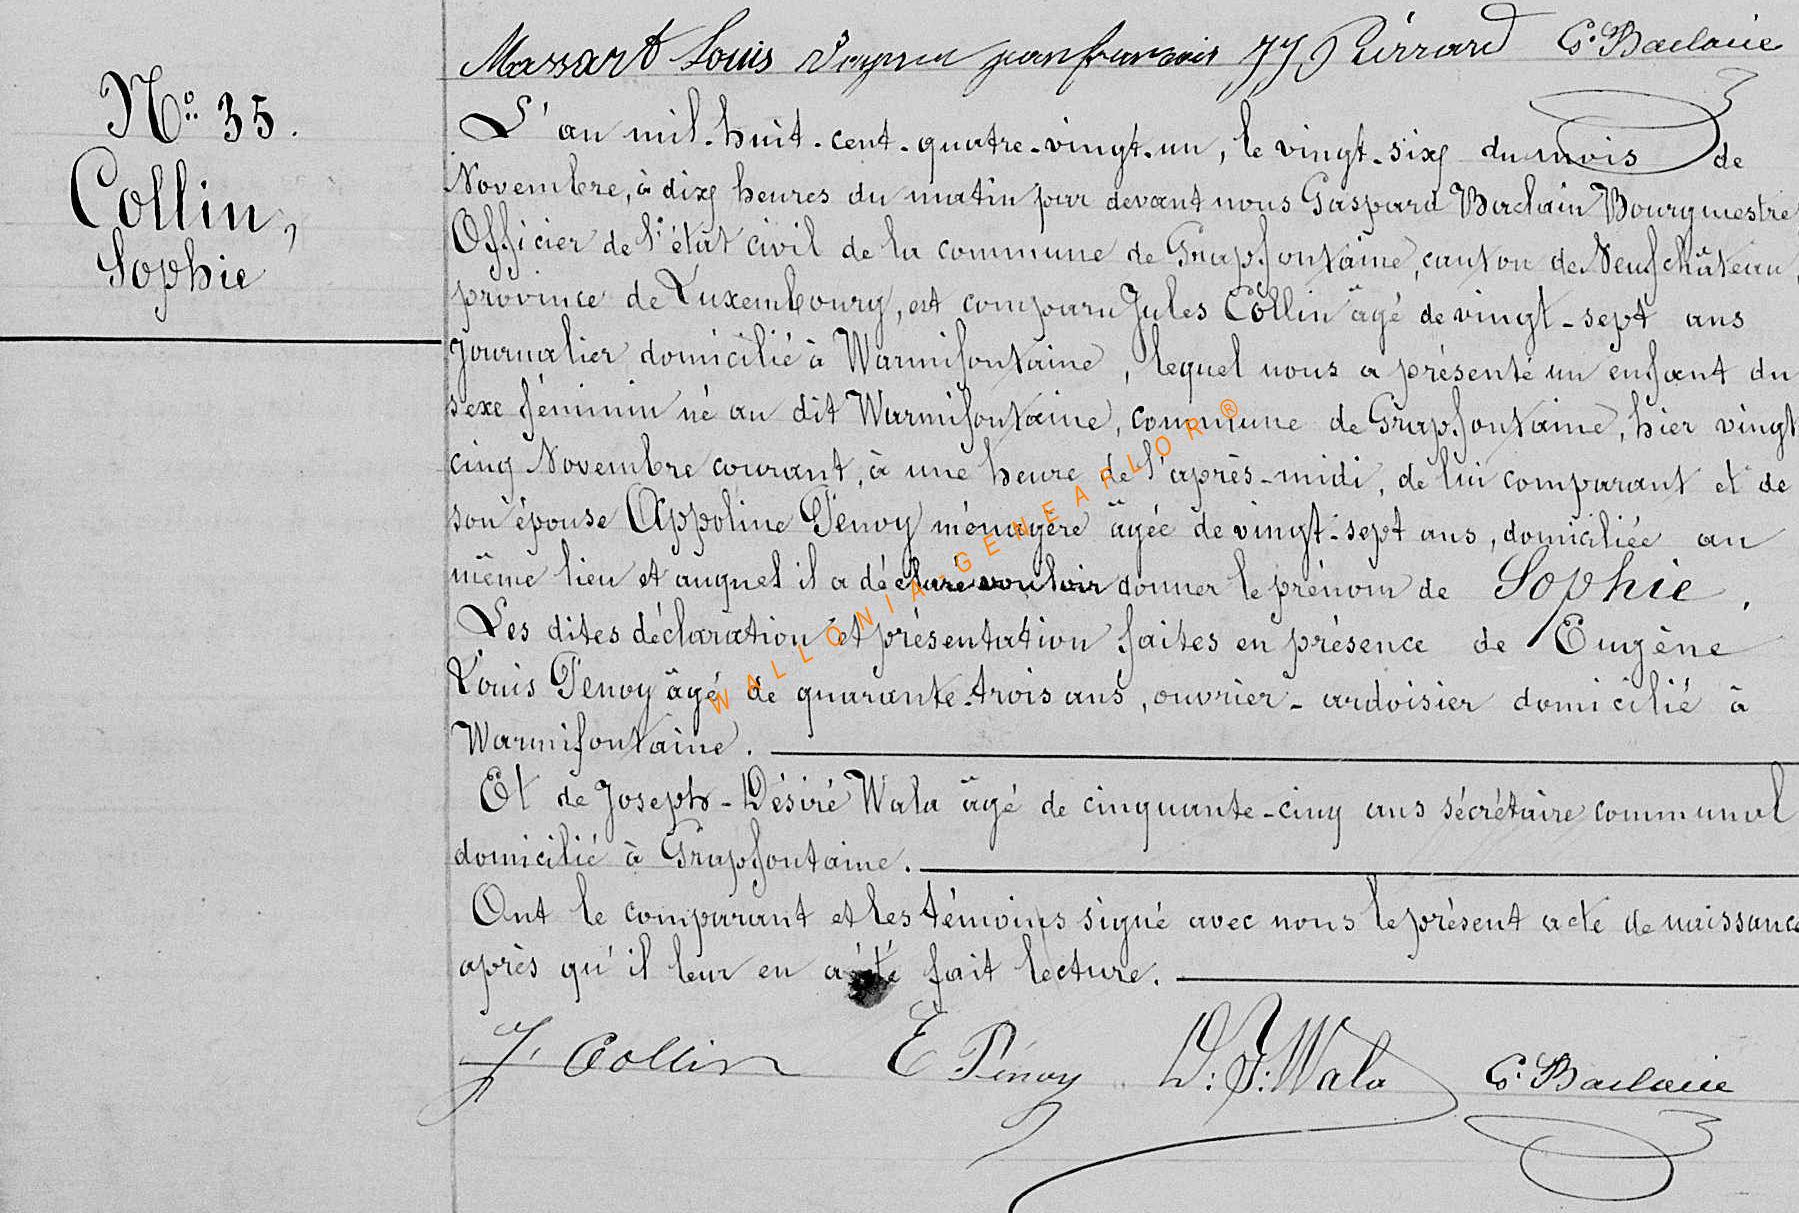 Massart Louis jean francois JJ Pierrard G. Baclain
N° 35.
Collin,
Sophie
L'an mil-huit-cent-quatre-vingt-un, le vingt-six du mois de
Novembre, à dix heures du matin par devant nous Gaspard Baclain Bourgmestre
Officier de l'état civil de la commune de Grapfontaine, canton de Neufchâteau,
province de Luxembourg, est comparu Jules Collin âgé de vingt-sept ans
Journalier domicilié à Warmifontaine, lequel nous a présenté un enfant du
sexe féminin né au dit Warmifontaine, commune de Grapfontaine, hier vingt
cinq Novembre courant, à une heure de l'après-midi, de lui comparant et de
son épouse Appoline Penoy ménagère âgée de vingt-sept ans, domiciliée au
même lieu et auquel il a déclaré vouloir donner le prénom de Sophie.
Les dites déclaration et présentation faites en présence de Eugène
Louis Penoy âgé de quarante-trois ans, ouvrier-ardoisier domicilié à
Warmifontaine.
Et de Joseph-Désiré Wala âgé de cinquante-cinq ans sécrétaire communal
domicilié à Grapfontaine.
Ont le comparant et les témoins signé avec nous le présent acte de naissance
après qu'il leur en a été fait lecture.
J. Collin E Pénoy D. J. Wala G. Baclain
WALLONIA-GENEAFLOR ®